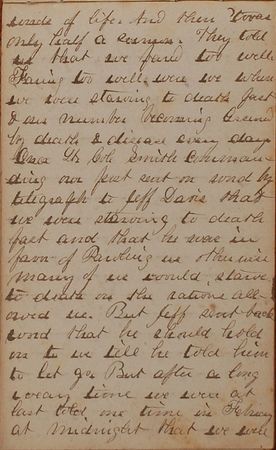 of life. And then twas
only half a They told
us that we fared too well
Faring too well, were we when
we were starving to death fast
& our number becoming
by death & disease every day
Once Lt Col. Smith Comman
ding our post sent on word by
telegraph to Jeff Davis that
we were starving to death
fast and that he was in
favor of Paroling us otherwise
many of us would starve
to death on the rations all
owed us. But Jeff sent back
word that he should hold
on to us till he told him
to let go But after a long
weary time we were at
last told one time in
at midnight that we